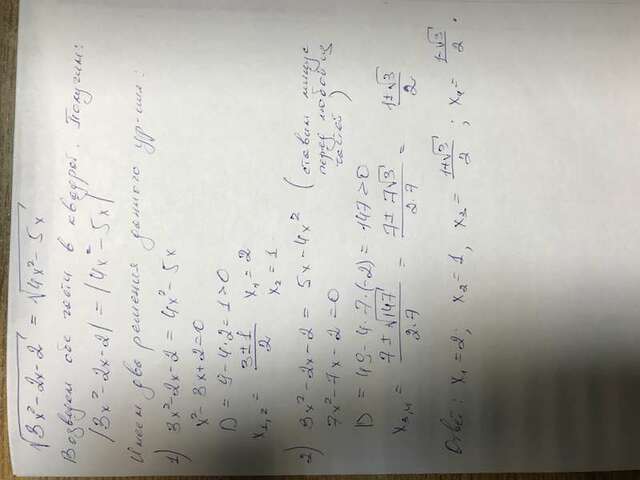 √(3x²-2x-2) = √(4x²-5x)
Возведем обе части в квадрат. Получим:
|3x²-2x-2| = |4x²-5x|
Имеем два решения данного ур-ния:
1) 3x²-2x-2 = 4x²-5x
x²-3x+2=0
D = 9-4·2=1>0
x₁,₂ = (3±1)/2 x₁=2
x₂=1
2) 3x²-2x-2 = 5x-4x² (ставим минус перед любой из частей)
7x²-7x-2=0
D = 49-4·7·(-2) = 147>0
x₃,₄ = (7±√147)/(2·7) = (7±7√3)/(2·7) = (1±√3)/2
Ответ: x₁=2; x₂=1, x₃ = (1+√3)/2; x₄ = (1-√3)/2.